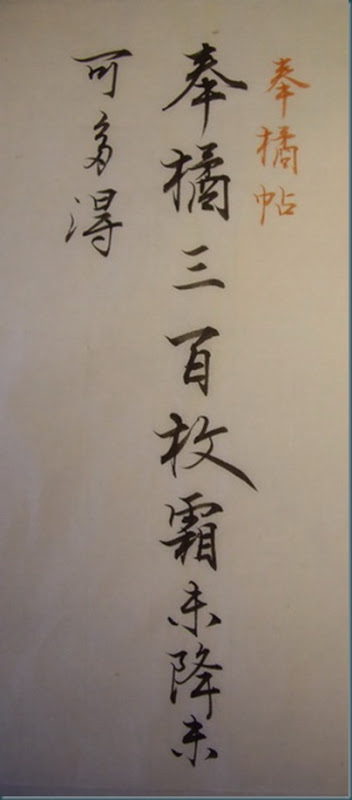 奉橘帖
奉橘三百枚霜未降未
可多得